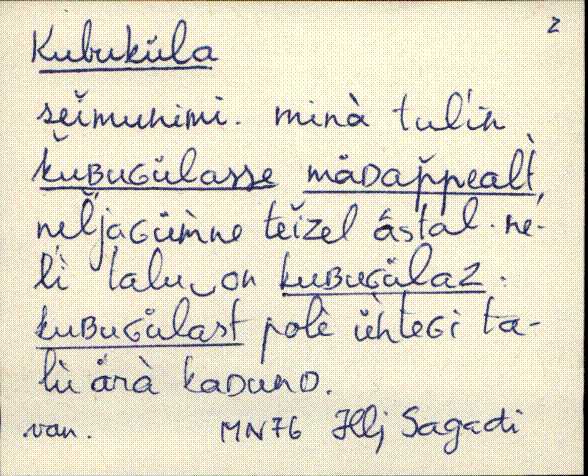 2
Kubuküla
seĭmunimi. minà tuĺin
k̆uBuGŭlasse mäDap̆pealt̀,
neĺjaGŭm̀ne teĭzel âstal. ne-
lì talu‿on kuBuGŭlaz.
kuBuGŭlast polè ŭh̀teGi ta-
lù ärà kaDunD.
van. MN76 Hlj Sagadi